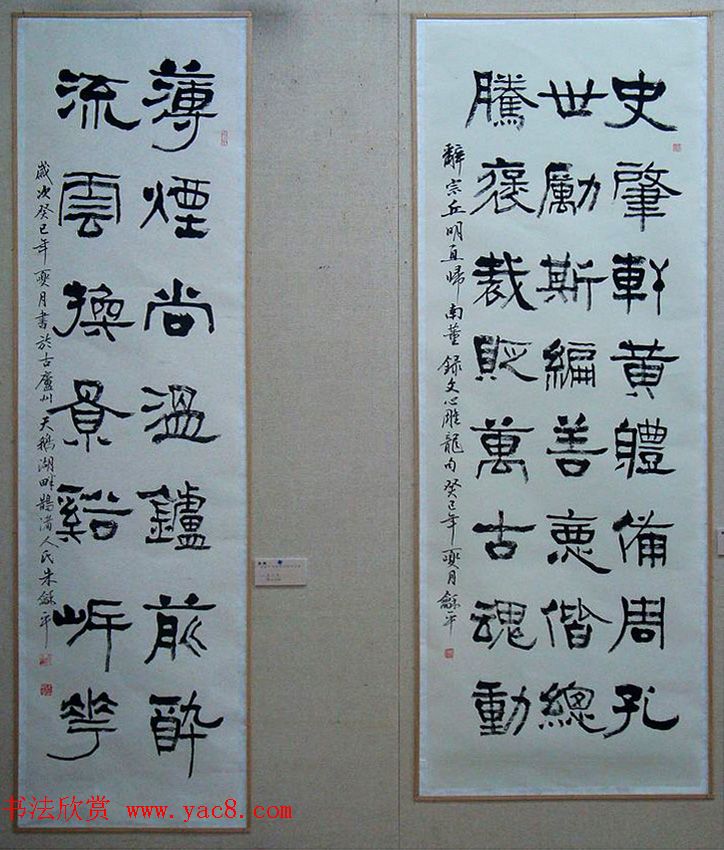 史肇軒黃體備周孔
世勵斯編善惡偕總
騰褒裁貶萬古魂動
辭宗丘明直歸南董 錄文心雕龍內 癸巳年 月 龢平
薄煙尚溫鑪前酔
流雲操景谿岍花
歲次癸巳年 月書於古廬州天鵝湖畔鵲渚人氏朱龢平
书法欣赏 www.yac8.com